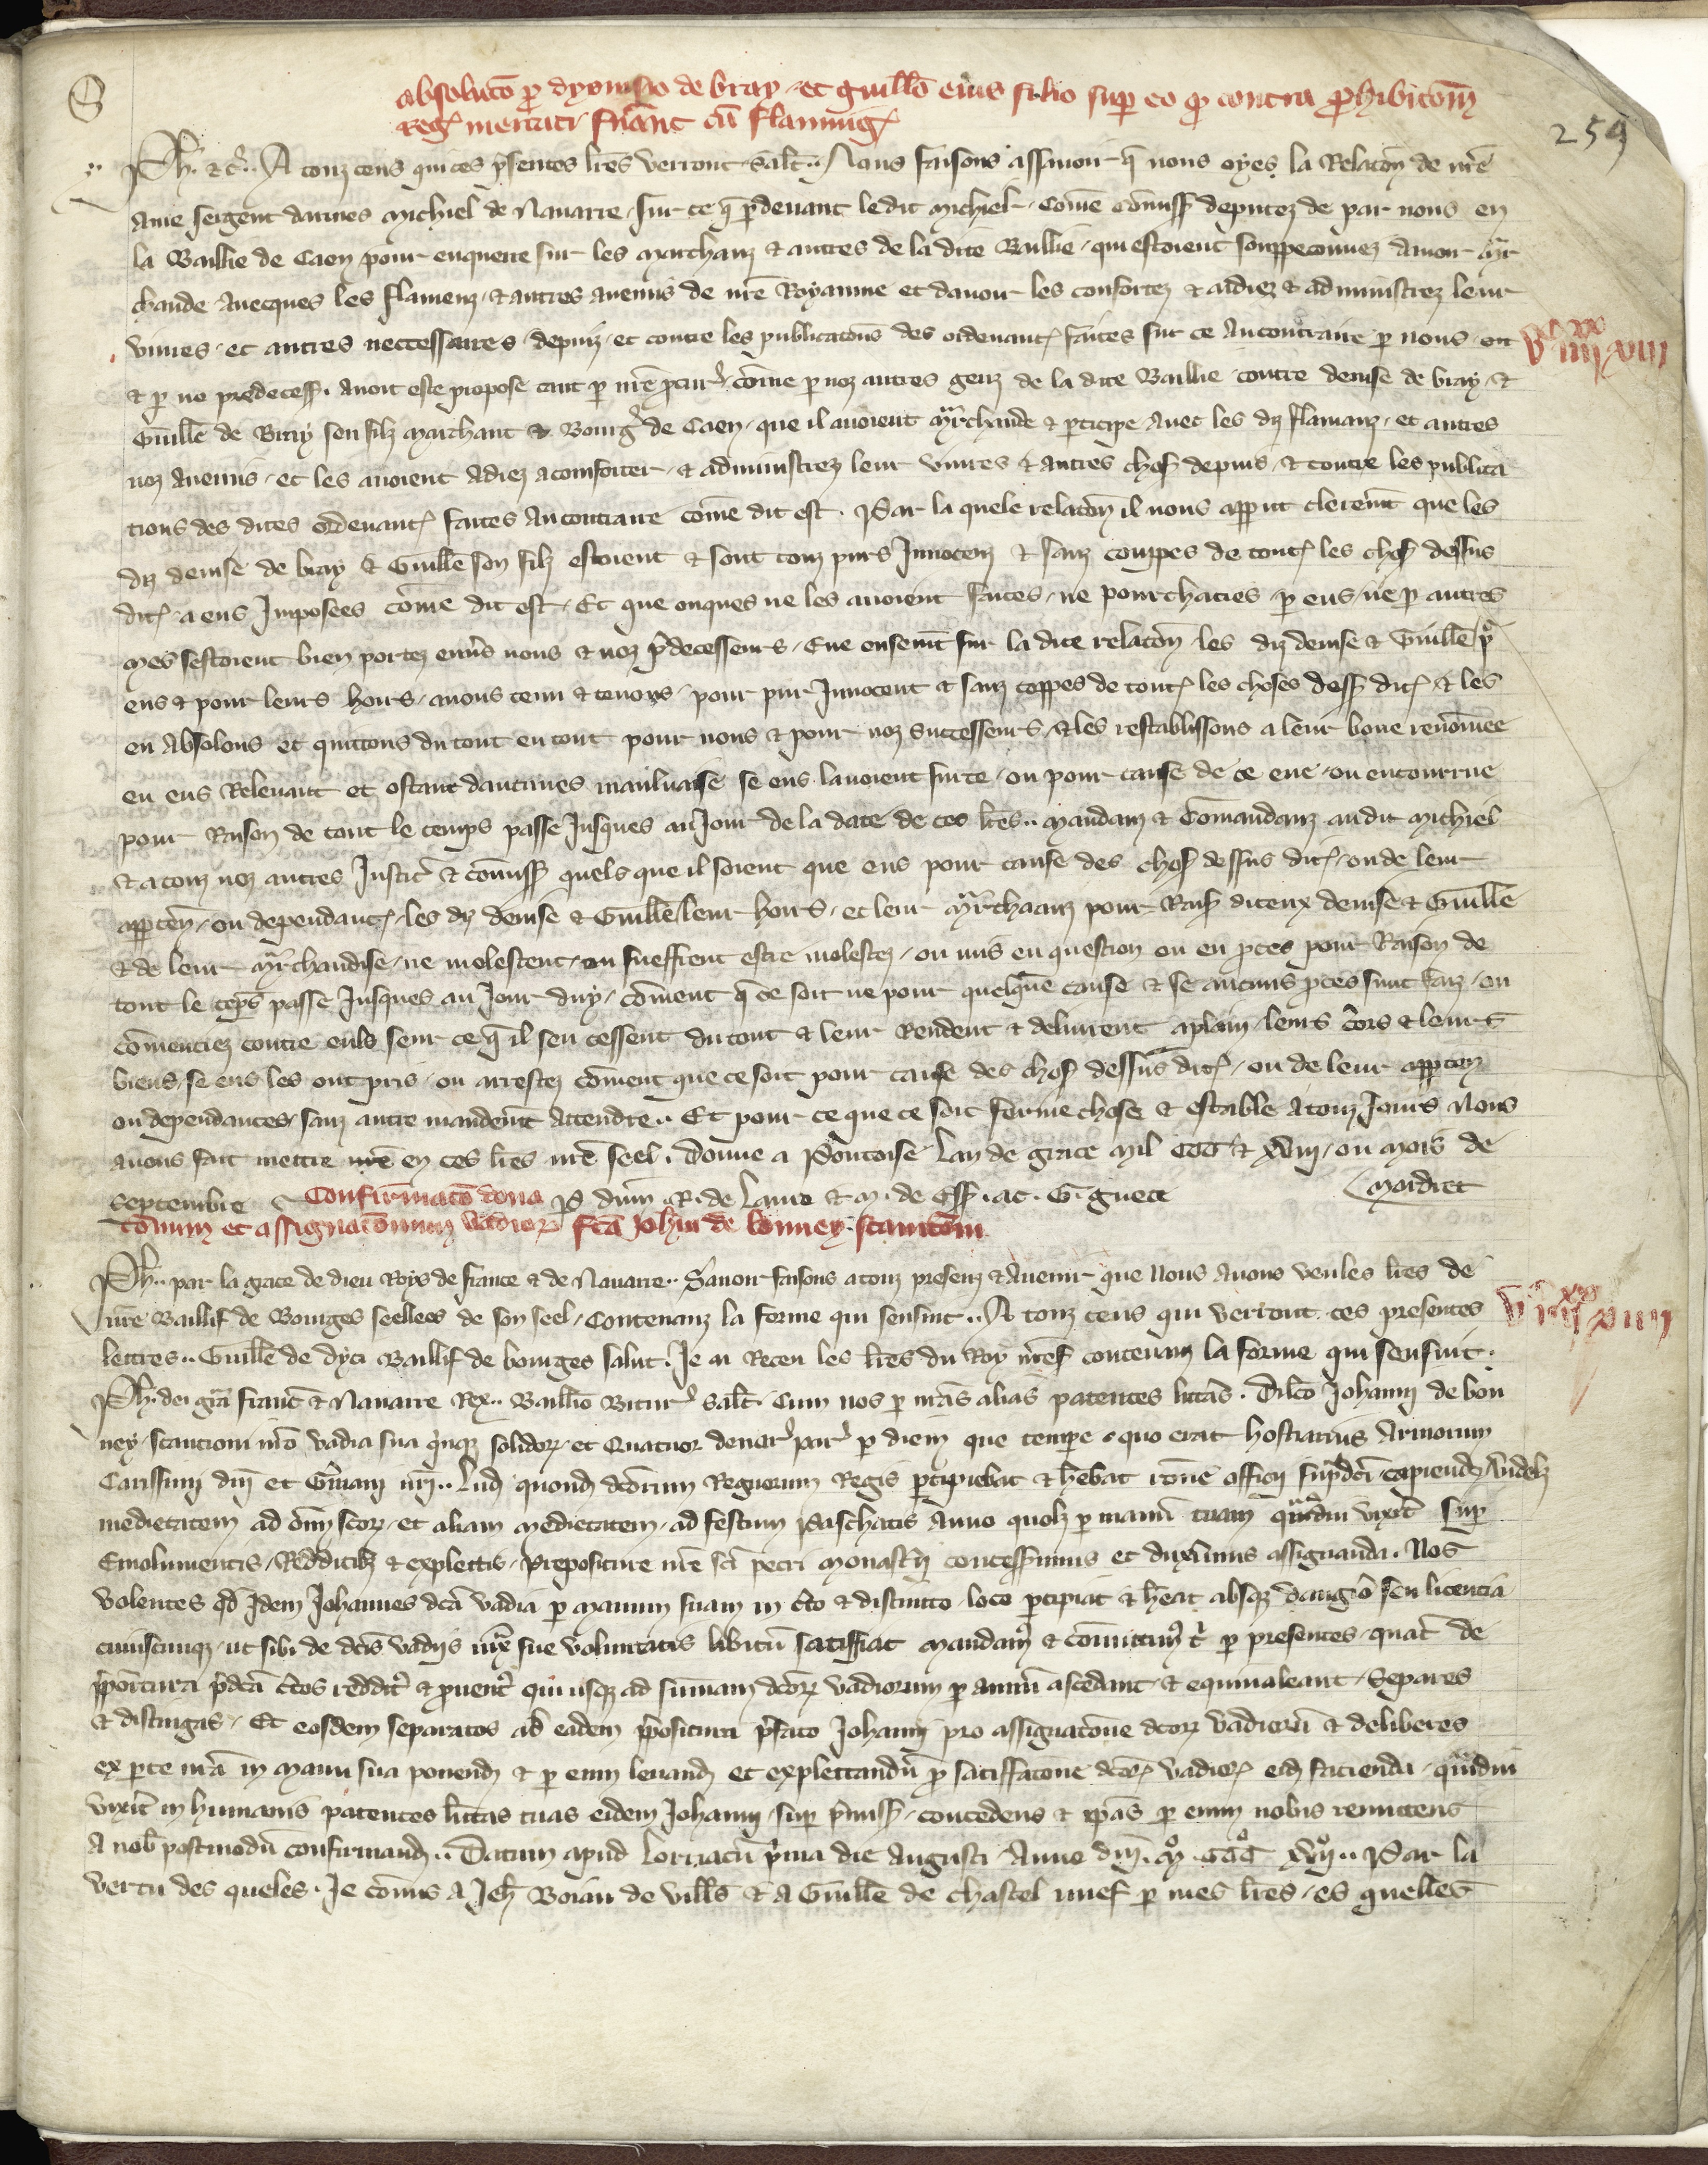 absoluto p dyonisio de bray et guillo eius filio sup eo q contra phibitom
Reg mercati fuant cu flammig
259
Ph. et c. A touz ceus qui ces psentes lres verront salt. Nous faisons assauoir q nous oyes la Relacon de nre
ame sergent darmes Michiel de Nauarre sur ce q pdeuant ledit Michiel Come comiss deputez de par nous en
la Baillie de Caen pour enquerre sur les Marchanz et autres de la dite Baillie qui estoient souppeconnez dauoir Mar
chande auecques les flamenz et autres anemis de nre Royaume et dauoir les confortez et aidiez et administrez leur
viures et autres neccessaires depuiz et contre les publicacons des ordenanc faites sur ce Aucontraire p nous ou
Vc iiiixx xviii
et p no predecess. auoit este propose tant p nre pcur come p noz autres genz de la dite Baillie contre denise de bray et
Guille de Bray son filz Marchant et Bourg de Caen que il auoient Marchande et pticipe auec les diz flamanz et autres
noz anemis et les auoient Adiez aconforter et administrez leur viures et autres chos depuis et contre les publica
tions des dites ordenanc faites Aucontraire come dit est. Par la quele relacon il nous apput cleremt que les
diz denise de bray et Guille son filz estoient et sont touz purs Innocenz et sanz coupes de tout les chos dessus
dit a eus Imposees come dit est. Et que onques ne les auoient faites ne pourchacies p eus ne p autres
Mes sestoient bien portez enuers nous et noz pdecesseurs. Eue ensemt sur la dite relacon les diz denise et Guille p
eus et pour leurs hoirs auons tenu et tenons pour pur Innocent et sanz coppes de tout les choses dess dit et les
en Absolons et quittons du tout en tout pour nous et pour noz successeurs et les restablissons a leur bone renomee
en eus Releuant et ostant daucunes mauluaise se eus lauoient surte ou pour cause de ce eue ou encourrue
pour Raison de tout le temps passe Jusques au Jour de la date de ces lres. Mandanz et Comandanz audit Michiel
et a touz noz autres Justic et comiss quels que il soient que eus pour cause des chos dessus dit ou de leur
appten ou dependanc les diz denise et Guille leur hoirs et leur Marchaanz pour Rais diceux denise et Guille
et de leur Marchandise ne molestent ou sueffrent estre molestez ou mis en question ou en pces pour Raison de
tout le teps passe Jusques au Jour duy coment q ce soit ne pour quelque cause et se aucuns pces sunt faiz ou
comenciez contre euls seur ce q il sen cessent du tout et leur Rendent et deliurent aplain leurs cors et leurs
biens se eus les ont pris ou arrestez coment que ce soit pour cause des chos dessus dit ou de leur apptenz
ou dependances sanz autre mandemt Attendre. Et pour ce que ce soit ferme chose et estable Atouz Jours Nous
auons fait mettre nre en ces lres nre seel. Donne a Pontoise Lan de grace Mil CCC et XVIII ou Mois de
Septembre
Confirmaco dona
P dnm R. de Lauro et M. de Ess. ac. G. guete
Mordret
conum et assignaconum vadior fca Johi de bonney scancom
Ph. par la grace de dieu Roys de france et de Nauarre. Sauoir faisons a touz presenz et Auenir que Nous Auons veu les lres de
nre Baillif de Bourges seellees de son seel Contenanz la forme qui sensuit. A touz ceus qui verront ces presentes
Vc iiiixx xviiii
lettres. Guille de dyci Baillif de bourges salut. Je ai Receu les lres du Roy nres contenanz la forme qui sensuit.
Ph. dei gra franc et Nauarre Rex. Baillio Bitur salt. Cum nos p nras alias patentes litteras. Dilco Johanni de bon
ney scancioni nro vadia sua quinqz solidor et Quatuor denar par p diem que tempe quo erat hostiarius Armorum
Carissimi dni et Gmani nri. Lud quond dcorum Regnorum Regis pcipiebat et hebat rone officii supdci capiend Videlz
medietatem ad omn scor et aliam medietatem ad festum Paschatis Anno quolz p manu tuam quadiu vixit sup
Emolumentis Redditibz et explectis prepositure nre sci petri Monasterii concessimus et duximus assignanda. Nos
volentes qd Idem Johannes dca vadia p manum suam in cto et distincto loco pcipiat et heat absqz dangio seu licencia
cuiuscunqz ut sibi de dcis vadiis iux sue voluntatis libitu satisfiat Mandam et comittim t p presentes quat de
ppositura pdca ctos reddit et puent qui usqz ad summam dcor vadiorum p annu ascedant et equiualeant Separes
et distingas. Et eosdem separatos ab eadem ppositura pfato Johanni pro assignacone dcor vadioru et deliberes
ex pte nra in Manu sua ponend et p eum leuand et explectandu p satisfacone dcor vadior eid facienda quadiu
vixit in humanis patentes litteras tuas eidem Johanni sup pmiss concedens et ipas p eum nobis remittens
A nob postmodu confirmand. Datum apud Lorriacu pma die Augusti Anno dni M CCC XVII. Par la
vertu des queles. Je comis A Jeh Boiau de vills et a Guille de chastel nuef p mes lres es quelles